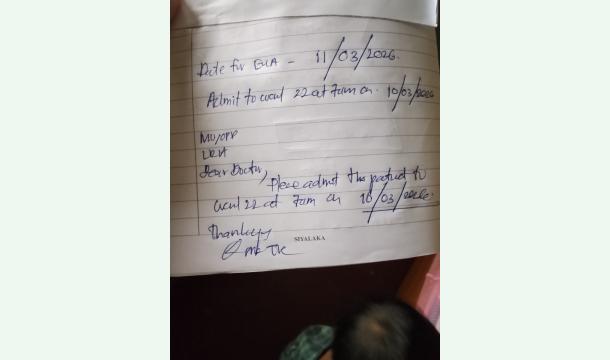 Date for EUA - 11/03/2026.
Admit to ward 22 at 7am on. 10/03/2026
MO/OPD
LRH
Dear Doctor,
Please admit this patient to
ward 22 at 7am on 10/03/2026.
Thank you
SIYALAKA